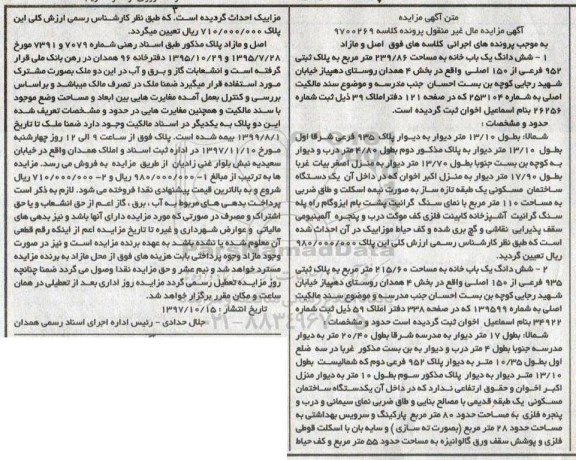 متن آگهی مزایده
آگهی مزایده مال غیر منقول پرونده کلاسه ۹۷۰۰۲۶۹
به موجب پرونده های اجرائی کلاسه های فوق اصل و مازاد
۱ – شش دانگ یک باب خانه به مساحت ۲۳۹/۸۶ متر مربع به پلاک ثبتی
۹۵۲ فرعی از ۱۵۰ اصلی واقع در بخش ۴ همدان روستای دهپیاز خیابان
شهید رجایی کوچه بن بست احسان جنب مدرسه و موضوع سند مالکیت
اصلی به شماره ۲۵۳۱۰۴ که در صفحه ۱۲۱ دفتر املاک ۳۹ ذیل ثبت شماره
۲۶۲۵۶ بنام اسماعیل اخوان ثبت گردیده است.
حدود و مشخصات :
شمالا: بطول ۱۳/۱۰ متر دیوار به دیوار پلاک ۹۳۵ فرعی شرقا اول
بطول ۱۳/۱۰ متر دیوار به پلاک مذکور دوم بطول ۴/۸۰ متر درب و دیوار
به کوچه بن بست جنوبا بطول ۱۳/۷۰ متر دیوار به منزل اصغر بیات غربا
بطول ۱۷/۹۰ متر دیوار به منزل اکبر اخوان که در داخل آن یک دستگاه
ساختمان مسکونی یک طبقه تازه ساز به صورت نیمه اسکلت و طاق ضربی
به مساحت ۱۱۰ متر مربع با نمای سنگ گرانیت پشت بام ایزوگام راه پله
سنگ گرانیت آشپزخانه کابینت فلزی کف موکت درب و پنجره آلمینیومی
سقف پذیرایی نقاشی و گچ بری شده و کف حیاط موزاییک در آن احداث شده
است که طبق نظر کارشناس رسمی ارزش کلی این پلاک ۹۸۰/۰۰۰/۰۰۰
ریال تعیین گردید.
۲ – شش دانگ یک باب خانه به مساحت ۲۱۵/۶۰ متر مربع به پلاک ثبتی
۹۳۵ فرعی از ۱۵۰ اصلی واقع در بخش ۴ همدان روستای دهپیاز خیابان
شهید رجایی کوچه بن بست احسان جنب مدرسه و موضوع سند مالکیت
اصلی به شماره ۱۳۹۵۹۹ که در صفحه ۳۳۸ دفتر املاک ۵۹ ذیل ثبت شماره
۳۴۹۲۲ بنام اسماعیل اخوان ثبت گردیده است حدود و مشخصات :
شمالا: بطول ۱۷ متر دیوار به مدرسه شرقا بطول ۲۰/۴۰ متر به دیوار
مدرسه جنوبا بطول ۴ متر درب و دیوار به بن بست مذکور غربا در سه ضلع
اول بطول ۱۰/۳۵ متر به دیوار پلاک ۹۵۲ فرعی دوم که شمالیست بطول
۱۳/۱۰ متر دیوار به دیوار پلاک مذکور سوم بطول ۱۰ متر به دیوار منزل
اکبر اخوان و حقوق ارتفاعی ندارد که در داخل آن یکدستگاه ساختمان
مسکونی یک طبقه قدیمی با مصالح بنایی و طاق ضربی نمای سیمانی و درب و
پنجره فلزی به مساحت حدود ۸۰ متر مربع پارکینگ و سرویس بهداشتی به
مساحت حدود ۲۸ متر مربع (بصورت ته سازی ) و سایه بان با اسکلت قوطی
فلزی و پوشش سقف ورق گالوانیزه به مساحت حدود ۵۵ متر مربع و کف حیاط
مزاییک احداث گردیده است. که طبق نظر کارشناس رسمی ارزش کلی این
پلاک ۷۱۰/۰۰۰/۰۰۰ ریال تعیین میگردد.
اصل و مازاد پلاک مذکور طبق اسناد رهنی شماره ۷۰۷۹ و ۷۳۹۱ مورخ
۱۳۹۵/۷/۲۸ و ۱۳۹۵/۱۰/۲۹ دفترخانه ۹۶ همدان در رهن بانک ملی قرار
گرفته است و انشعابات گاز و برق و آب در این دو ملک بصورت مشترک
مورد استفاده قرار میگیرد ضمنا ملک در تصرف مالک میباشد و براساس
بررسی و کنترل بعمل آمده مغایرت هایی بین ابعاد و مساحت وضع موجود
با سند مالکیت و همچنین مغایرت هایی در حدود و مشخصات تعریف شده
این دو پلاک به یکدیگر در اسناد مالکیت وجود دارد ضمنا ملک تا تاریخ
۱۳۹۹/۸/۱ بیمه شده است. پلاک فوق از ساعت ۹ الی ۱۲ روز چهارشنبه
مورخ ۱۳۹۷/۱۱/۱۰ در اداره ثبت اسناد و املاک همدان واقع در خیابان
سعیدیه نبش بلوار غنی زادیان از طریق مزایده به فروش می رسد. مزایده
ها به ترتیب از مبالغ ۱– ۹۸۰/۰۰۰/۰۰۰ ریال و ۲– ۷۱۰/۰۰۰/۰۰۰ ریال
شروع و به بالاترین قیمت پیشنهادی نقدا فروخته می شود. لازم به ذکر است
پرداخت بدهی های مربوط به آب ، برق ، گاز اعم از حق انشعاب و یا حق
اشتراک و مصرف در صورتی که مورد مزایده دارای آنها باشد و نیز بدهی های
مالیاتی و عوارض شهرداری و غیره تا تاریخ مزایده اعم از اینکه رقم قطعی
آن معلوم شده یا نشده باشد به عهده برنده مزایده است و نیز در صورت
وجود مازاد وجوه پرداختی بابت هزینه های فوق از محل مازاد به برنده مزایده
مسترد خواهد شد و نیم عشر و حق مزایده نقدا وصول می گردد ضمنا چنانچه
روز مزایده تعطیل رسمی گردد مزایده روز اداری بعد از تعطیلی در همان
ساعت و مکان مقرر برگزار خواهد شد.
تاریخ انتشار : ۱۳۹۷/۱۰/۱۵
جلال حدادی – رئیس اداره اجرای اسناد رسمی همدان